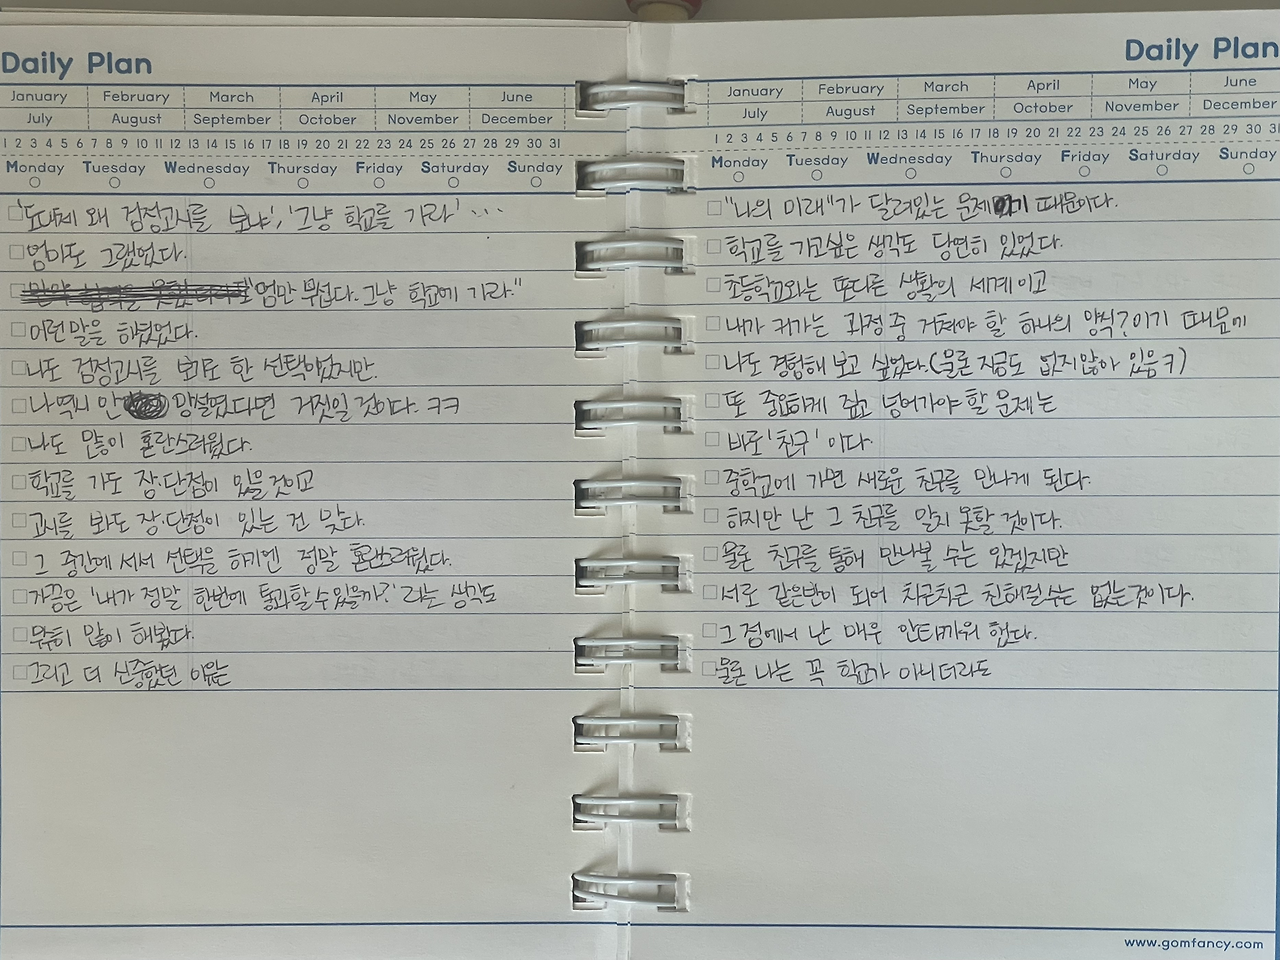 Daily Plan
January February March April May June
July August September October November December
1 2 3 4 5 6 7 8 9 10 11 12 13 14 15 16 17 18 19 20 21 22 23 24 25 26 27 28 29 30 31
Monday Tuesday Wednesday Thursday Friday Saturday Sunday
'도대체 왜 검정고시를 보냐', '그냥 학교를 가라' ...
엄마도 그랬었다.
"엄만 무섭다. 그냥 학교에 가라."
이런말을 하셨었다.
나도 검정고시를 봐도 한 선택이었지만.
나역시 안 망설였다면 거짓일 것이다. ㅋㅋ
나도 많이 혼란스러웠다.
학교를 가도 장·단점이 있을것이고
고시를 봐도 장·단점이 있는 건 맞다.
그 중간에 서서 선택을 하기엔 정말 혼란스러웠다.
가끔은 '내가 정말 한번에 통과할수있을까?' 라는 생각도
무수히 많이 해봤다.
그리고 더 신중했던 이유는
Daily Plan
January February March April May June
July August September October November December
1 2 3 4 5 6 7 8 9 10 11 12 13 14 15 16 17 18 19 20 21 22 23 24 25 26 27 28 29 30 31
Monday Tuesday Wednesday Thursday Friday Saturday Sunday
"나의 미래"가 달려있는 문제이기 때문이다.
학교를 가고싶은 생각도 당연히 있었다.
초등학교와는 또다른 생활의 세계이고
내가 커가는 과정 중 거쳐야 할 하나의 양식?이기 때문에
나도 경험해 보고 싶었다.(물론 지금도 없지않아 있음ㅋ)
또 중요하게 짚고 넘어가야 할 문제는
바로 '친구' 이다.
중학교에 가면 새로운 친구를 만나게 된다.
하지만 난 그 친구를 알지 못할 것이다.
물론 친구를 통해 만나볼 수는 있겠지만
서로 같은반이 되어 차근차근 친해질수는 없는것이다.
그 점에서 난 매우 안타까워 했다.
물론 나는 꼭 학교가 아니더라도
www.gomfancy.com